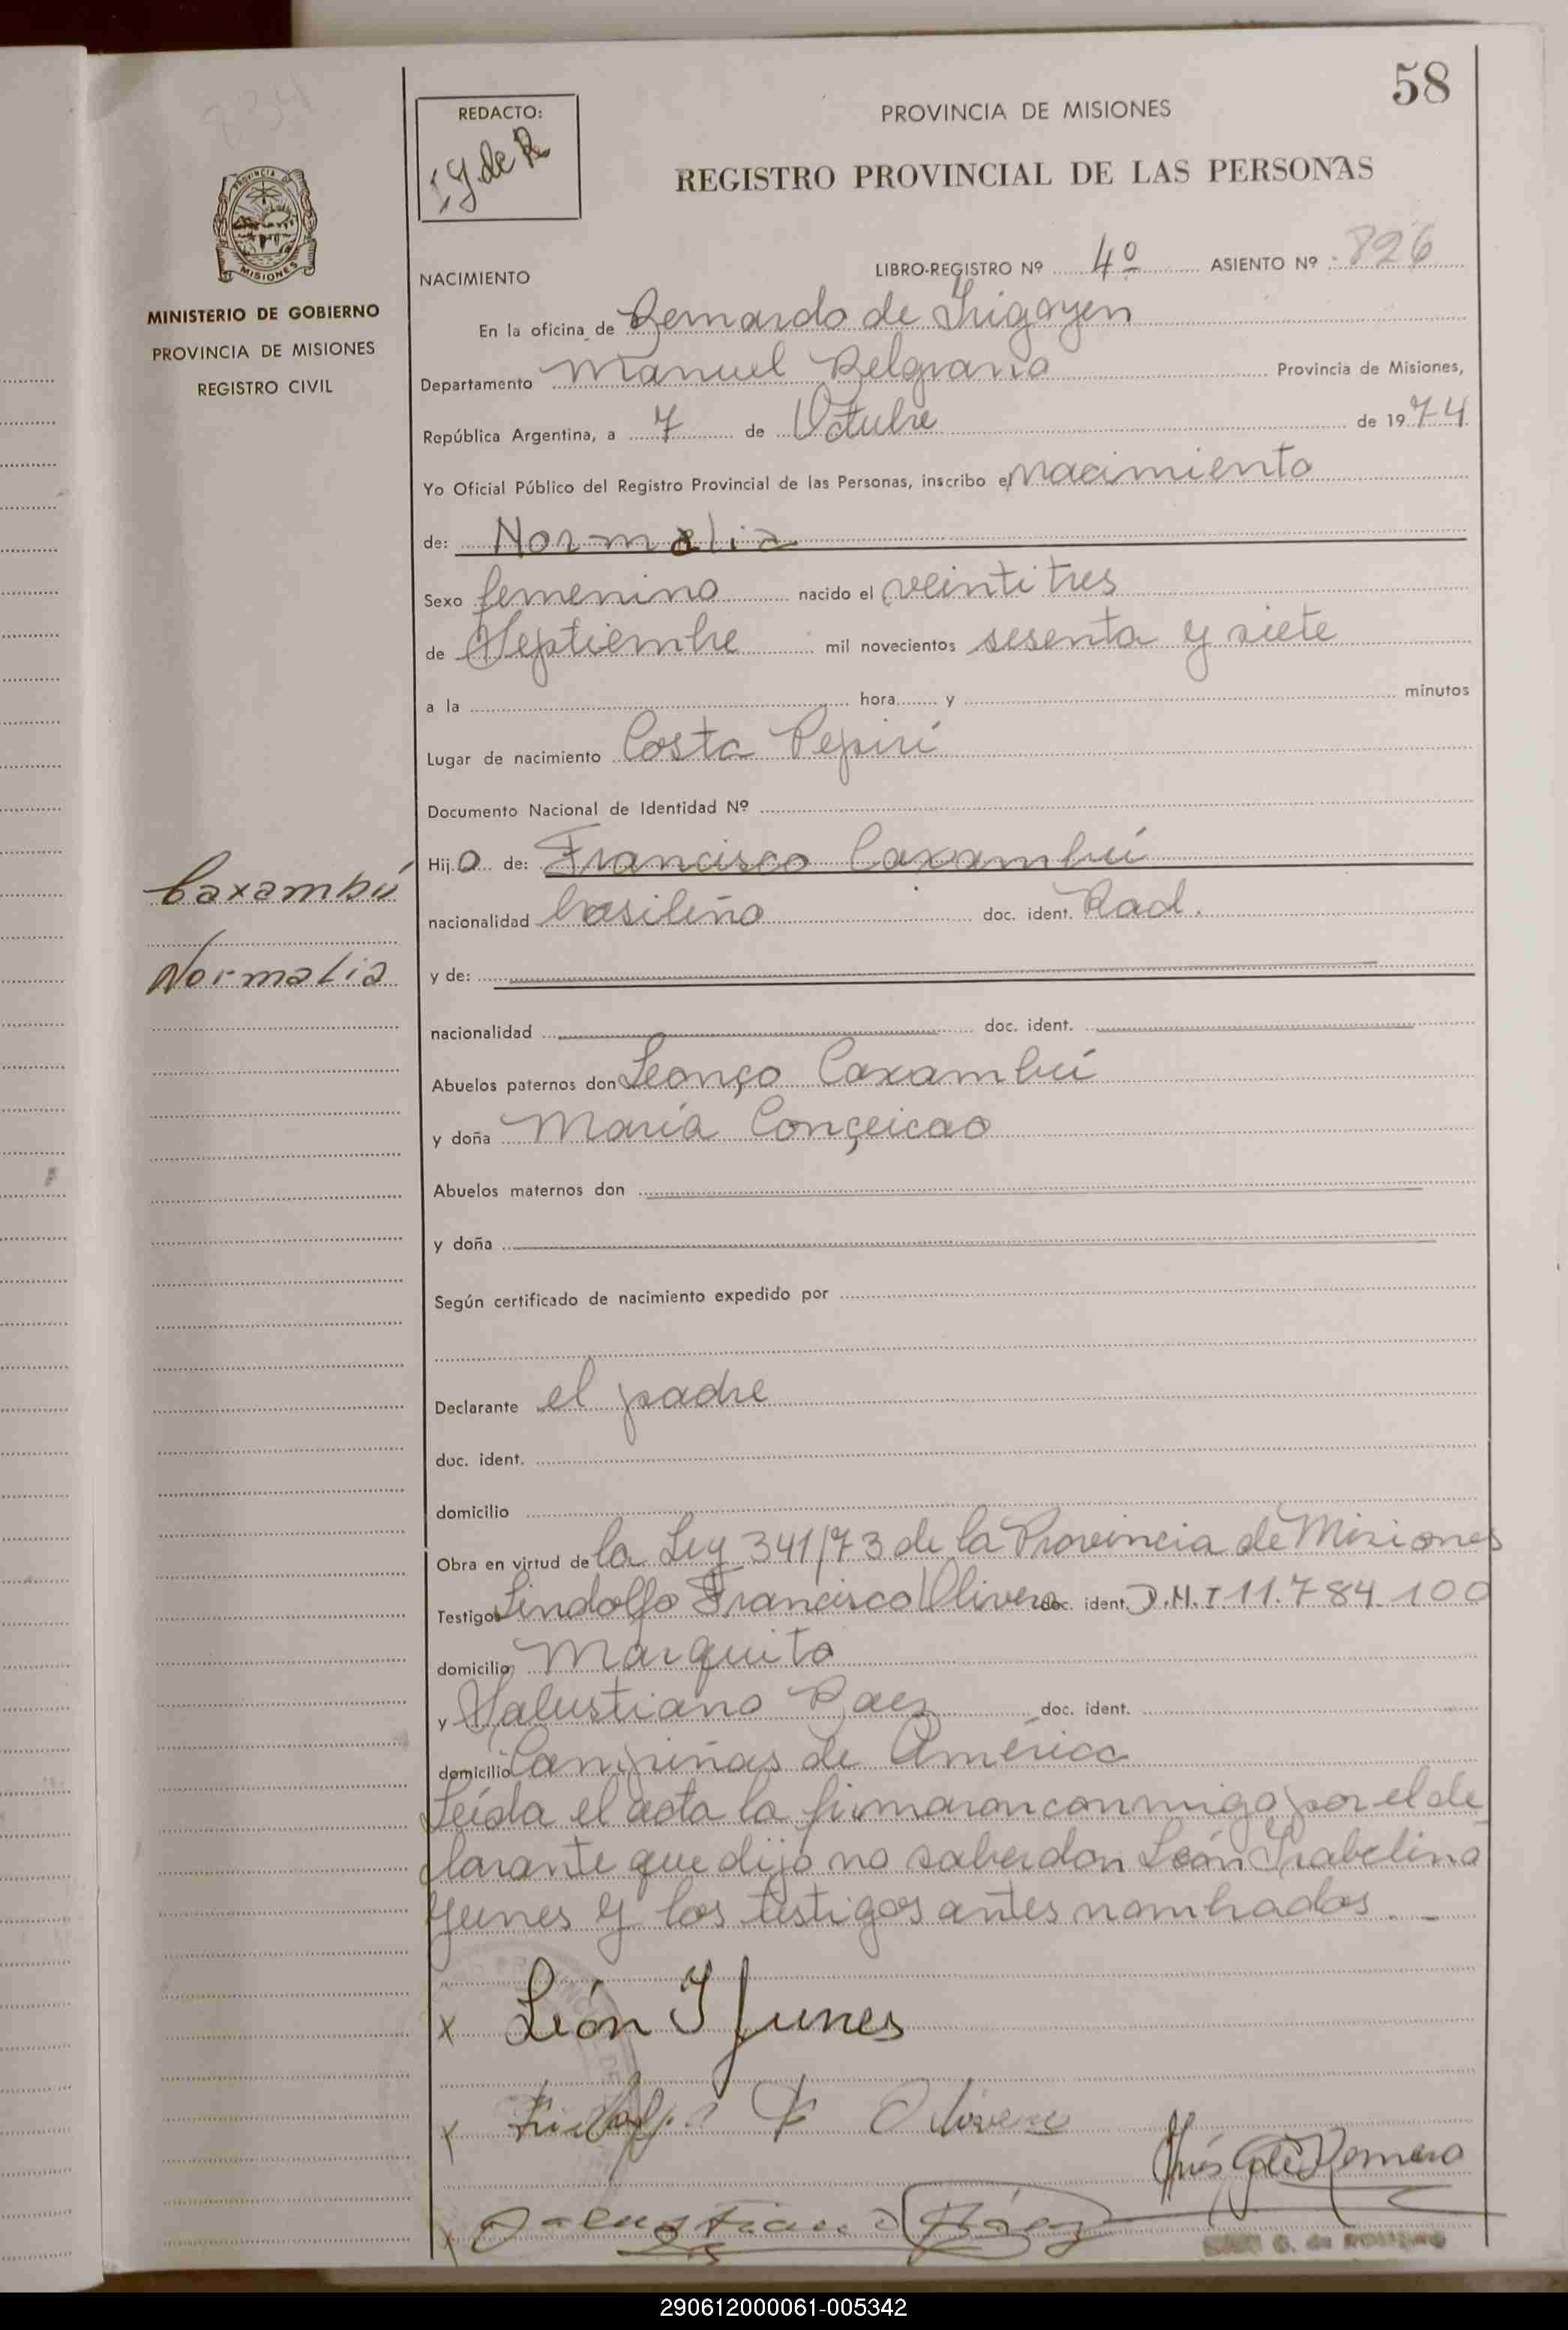 58
REDACTO:
I G de R
PROVINCIA DE MISIONES
REGISTRO PROVINCIAL DE LAS PERSONAS
PROVINCIA DE
MISIONES
MINISTERIO DE GOBIERNO
PROVINCIA DE MISIONES
REGISTRO CIVIL
NACIMIENTO
LIBRO-REGISTRO Nº 4º ASIENTO Nº 826
En la oficina de Bernardo de Irigoyen
Departamento Manuel Belgrano Provincia de Misiones,
República Argentina, a 7 de Octubre de 1974
Yo Oficial Público del Registro Provincial de las Personas, inscribo el nacimiento
de: Normalia
Sexo femenino nacido el veintitres
de Septiembre mil novecientos sesenta y siete
a la hora y minutos
Lugar de nacimiento Costa Pepirí
Documento Nacional de Identidad Nº
Hija de: Francisco Caxambú
Caxambú
nacionalidad brasileño doc. ident. Rad.
Normalia
y de:
nacionalidad doc. ident.
Abuelos paternos don Leonço Caxambú
y doña María Conçeicao
Abuelos maternos don
y doña
Según certificado de nacimiento expedido por
Declarante el padre
doc. ident.
domicilio
Obra en virtud de la Ley 341/73 de la Provincia de Misiones
Testigos Lindolfo Francisco Olivera doc. ident. D.N.I 11.784.100
domicilio Marquito
y Salustiano Baez doc. ident.
domicilio Campiñas de América
Leída el acta la firmaron conmigo por el de
clarante que dijo no saber don León Isabelino
Yunes y los testigos antes nombrados. _
x León I Yunes
x F Olivera
Inés G de Romero
x Salustiano Báez
G. de ROMERO
290612000061-005342